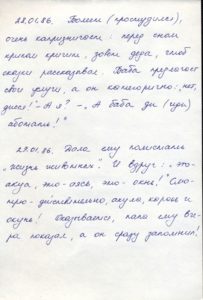 28.01.86. Болеет (простудился),
очень капризничает: перед сном
криком кричит, зовёт деда, чтоб
сказки рассказывал. Баба предлагает
свои услуги, а он категорично: „нет,
деда!" – А я? – „А баба ди (иди)
работать!"
29.01.86. Дала ему полистать
„жизнь животных". И вдруг: „это-
акуа, это-аясь, это-окнь!" Смо-
трю – действительно, акула, карась и
окунь! Оказывается, папа ему вче-
ра показал, а он сразу запомнил!